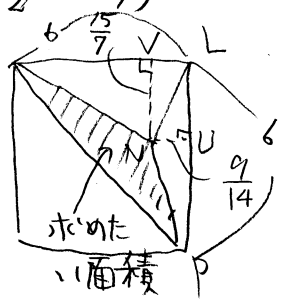 6 15/7 V L
N U 6
9/14
求めた
い面積 P